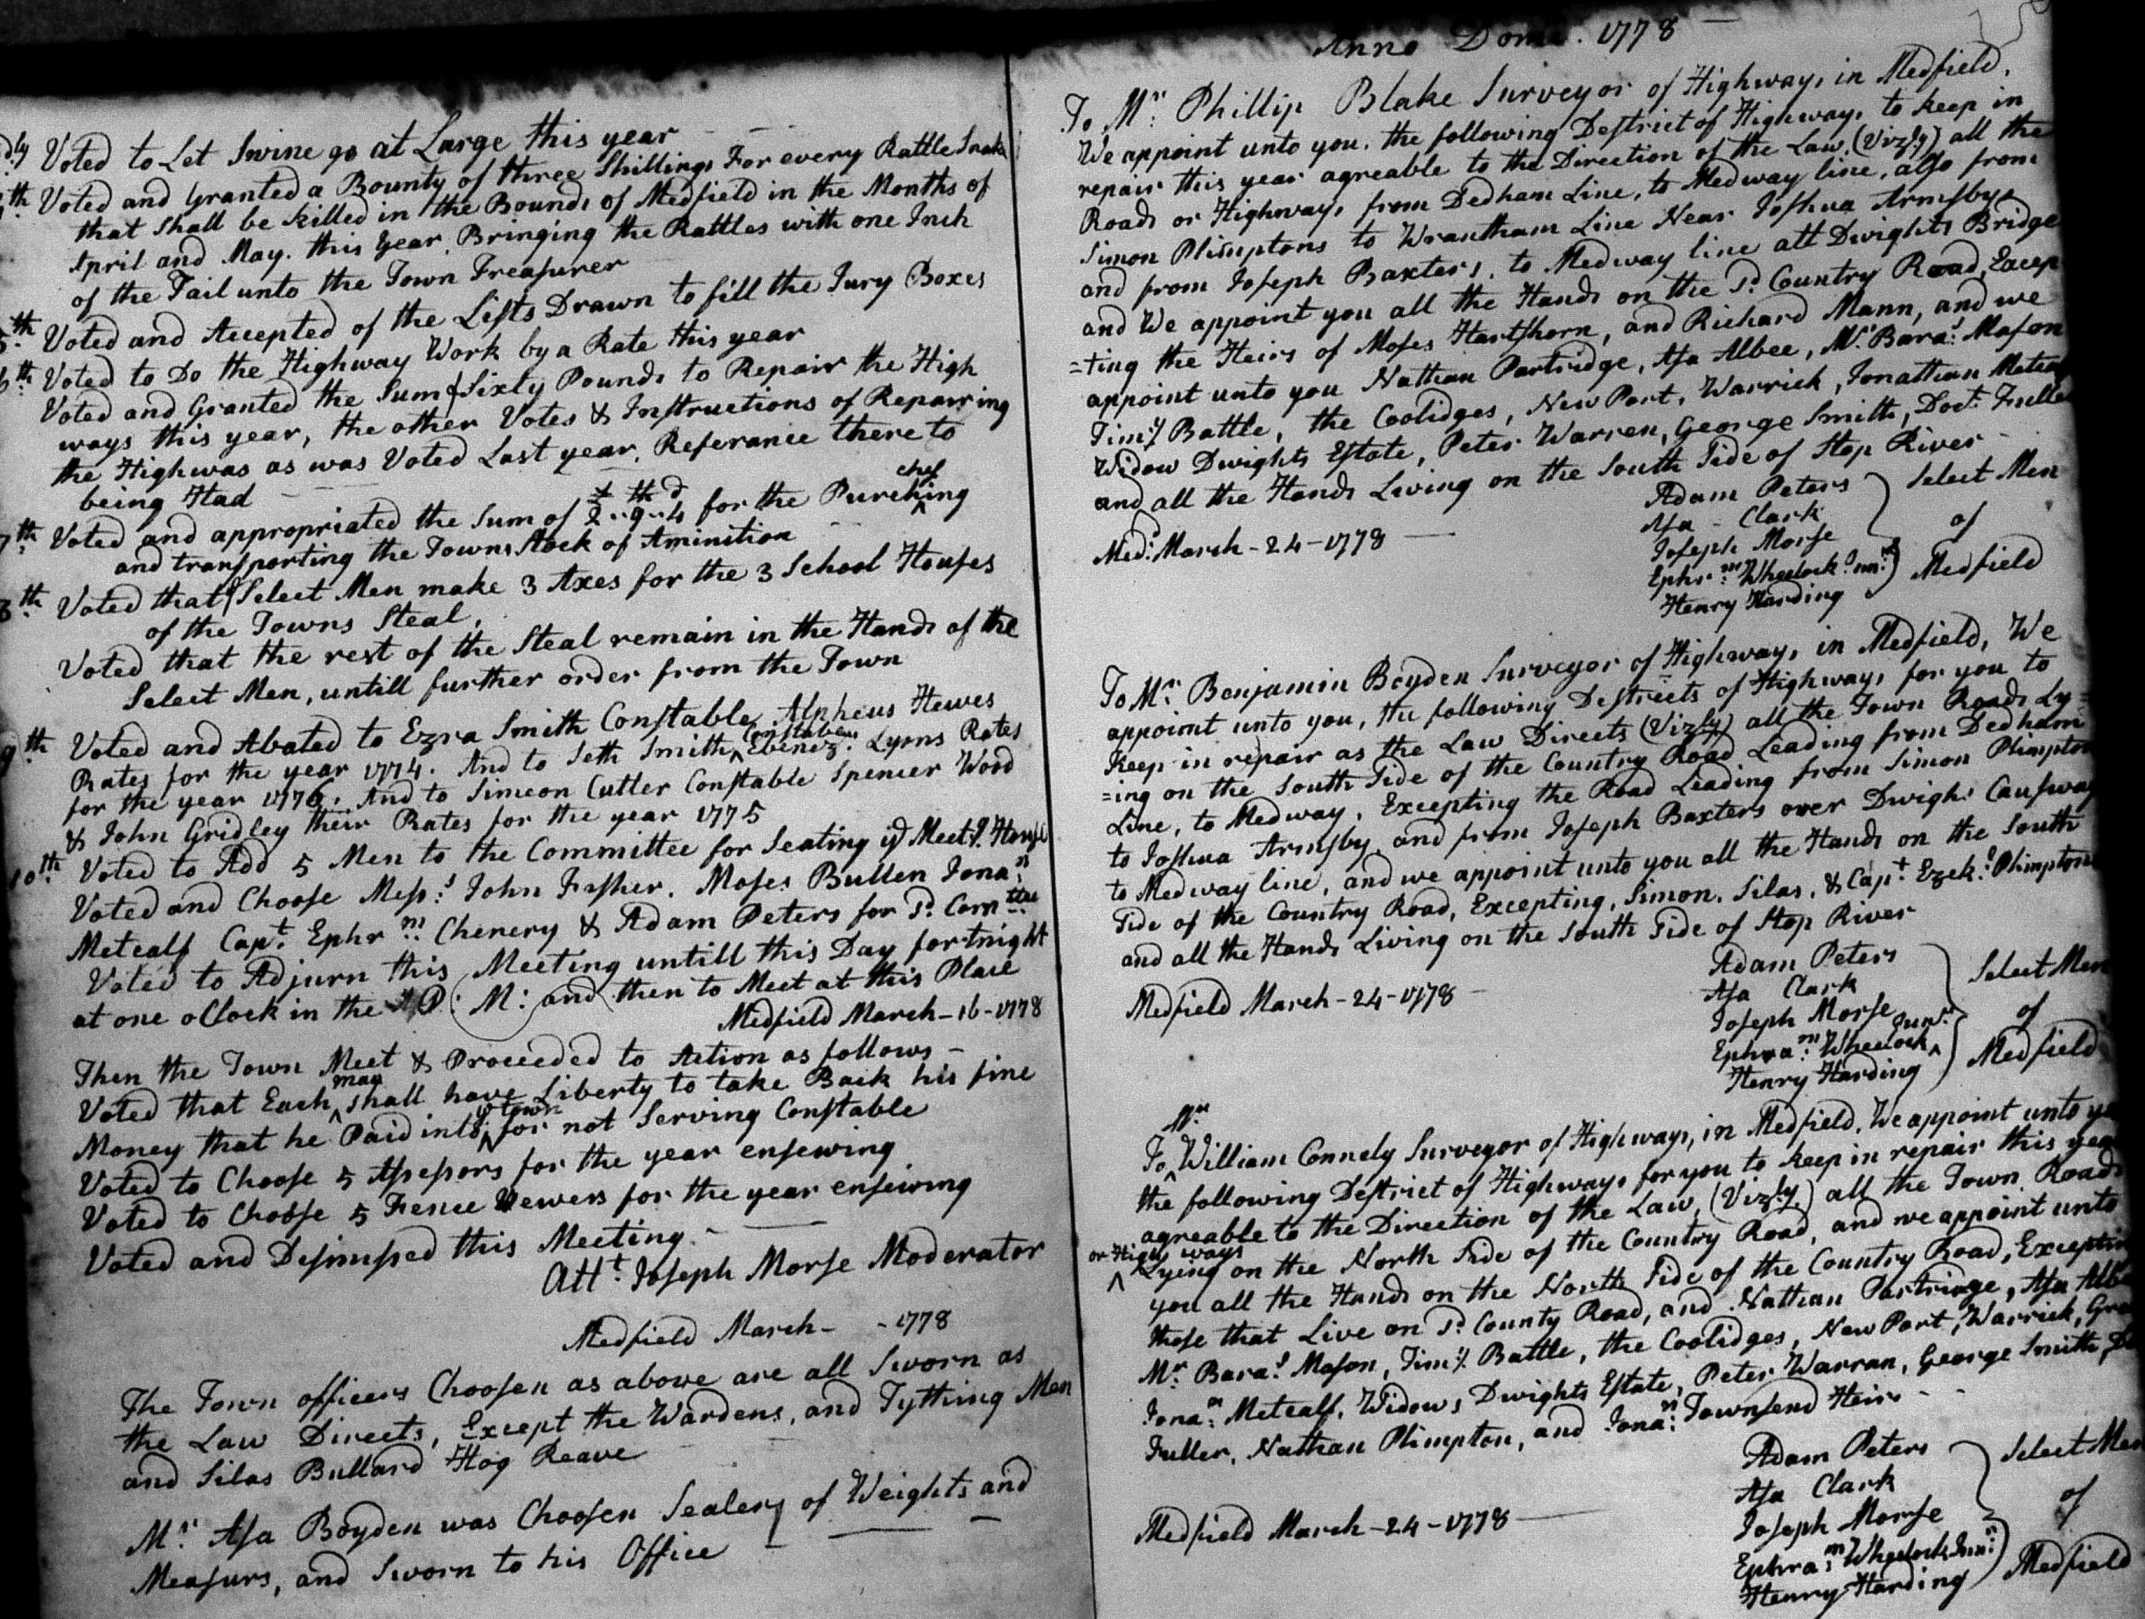 dly Voted to Let Swine go at Large this year
th Voted and Granted a Bounty of three Shillings For every Rattle Snake
that shall be killed in the Bounds of Medfield in the Months of
April and May. this year. Bringing the Rattles with one Inch
of the Tail unto the Town Treasurer
5th Voted and Accepted of the Lists Drawn to fill the Jury Boxes
6th Voted to Do the Highway Work by a Rate this year
Voted and Granted the Sum of Sixty Pounds to Repair the High
ways this year, the other Votes & Instructions of Repairing
the Highwas as was Voted Last year, Referance there to
being Had
7th Voted and appropriated the Sum of 2..9..4 for the Purching
and transporting the Towns Stock of Aminition
8th Voted that Select Men make 3 Axes for the 3 School Houses
of the Towns Steal,
Voted that the rest of the Steal remain in the Hands of the
Select Men, untill further order from the Town
9th Voted and Abated to Ezra Smith Constable Alpheus Hewes
Rates for the year 1774. And to Seth Smith Constable Ebenez.r Lyons Rates
for the year 1776. And to Simeon Cutler Constable Spencer Wood
& John Gridley their Rates for the year 1775
10th Voted to Add 5 Men to the Committee for Seating ye Meetg House
Voted and Choose Mess:s John Fisher. Moses Bullen Jona:n
Metcalf Capt. Ephr:m Chenery & Adam Peters for Sd. Comttee
Voted to Adjurn this Meeting untill this Day fortnight
at one oClock in the P: M: and then to Meet at this Place
Medfield March - 16 - 1778
Then the Town Meet & Proceeded to Action as follows -
Voted that Each man shall have Liberty to take Back his fine
Money that he Paid into ye town for not Serving Constable
Voted to Choose 5 Assessors for the year ensewing
Voted to Choose 5 Fence Vewers for the year ensewing
Voted and Desimssed this Meeting -
Att.t Joseph Morse Moderator
Medfield March - - 1778
The Town officers Choosen as above are all Sworn as
the Law Directs, Except the Wardens, and Tything Men
and Silas Bullard Hog Reave
Mr. Asa Boyden was Choosen Sealer of Weights and
Measurs, and Sworn to his Office
Anno Domi. 1778
To Mr. Phillip Blake Surveyor of Highways in Medfield,
We appoint unto you, the following Destrict of Highways to keep in
repair this year agreable to the Direction of the Law, (Vizly) all the
Roads or Highways from Dedham Line, to Medway line, also from
Simon Plimptons to Wrantham Line Near Joshua Armsbys
and from Joseph Baxters, to Medway line att Dwights Bridge
and We appoint you all the Hands on the Sd. Country Road, Excep
=ting the Heirs of Moses Hartshorn, and Richard Mann, and we
appoint unto you Nathan Partridge, Asa Albee, Mr. Bara:s Mason
Timy. Battle, the Coolidges, New Port, Warrick, Jonathan Metcalf
Widow Dwights Estate, Peter Warren, George Smith, Doct. Fuller
and all the Hands Living on the South Side of Stop River
Med:d March - 24 - 1778
Adam Peters
Asa - Clark
Joseph Morse
Ephr:m Wheelock Jun:r
Henry Harding
Select Men
of
Medfield
To Mr. Benjamin Boyden Surveyor of Highways in Medfield, We
appoint unto you, the following Destreets of Highways for you to
Keep in repair as the Law Directs (Vizly) all the Town Roads Ly=
=ing on the South Side of the Country Road Leading from Dedham
Line, to Medway, Excepting the Road Leading from Simon Plimpton
to Joshua Armsby, and from Joseph Baxters over Dwight Causway
to Medway line, and we appoint unto you all the Hands on the South
Side of the Country Road, Excepting, Simon, Silas, & Capt. Ezek:l Plimpton
and all the Hands Living on the South Side of Stop River
Medfield March - 24 - 1778
Adam Peters
Asa Clark
Joseph Morse
Ephra:m Wheelock Junr.
Henry Harding
Select Men
of
Medfield
To Mr. William Connely Surveyor of Highways, in Medfield, We appoint unto you
the following Destrict of Highways for you to keep in repair this year
agreable to the Direction of the Law, (Vizly) all the Town Roads
or High ways Lying on the North Side of the Country Road, and we appoint unto
you all the Hands on the North Side of the Country Road, Excepting
those that Live on Sd. County Road, and Nathan Partridge, Asa Albee
Mr. Bara:s Mason, Timy. Battle, the Coolidges, New Port, Warrick,
Jona:n Metcalf, Widows Dwights Estate, Peter Warran, George Smith,
Fuller, Nathan Plimpton, and Jona:n Townsend Heirs
Medfield March - 24 - 1778
Adam Peters
Asa Clark
Joseph Morse
Ephra:m Wheelock Jun:r
Henry Harding
Select Men
of
Medfield